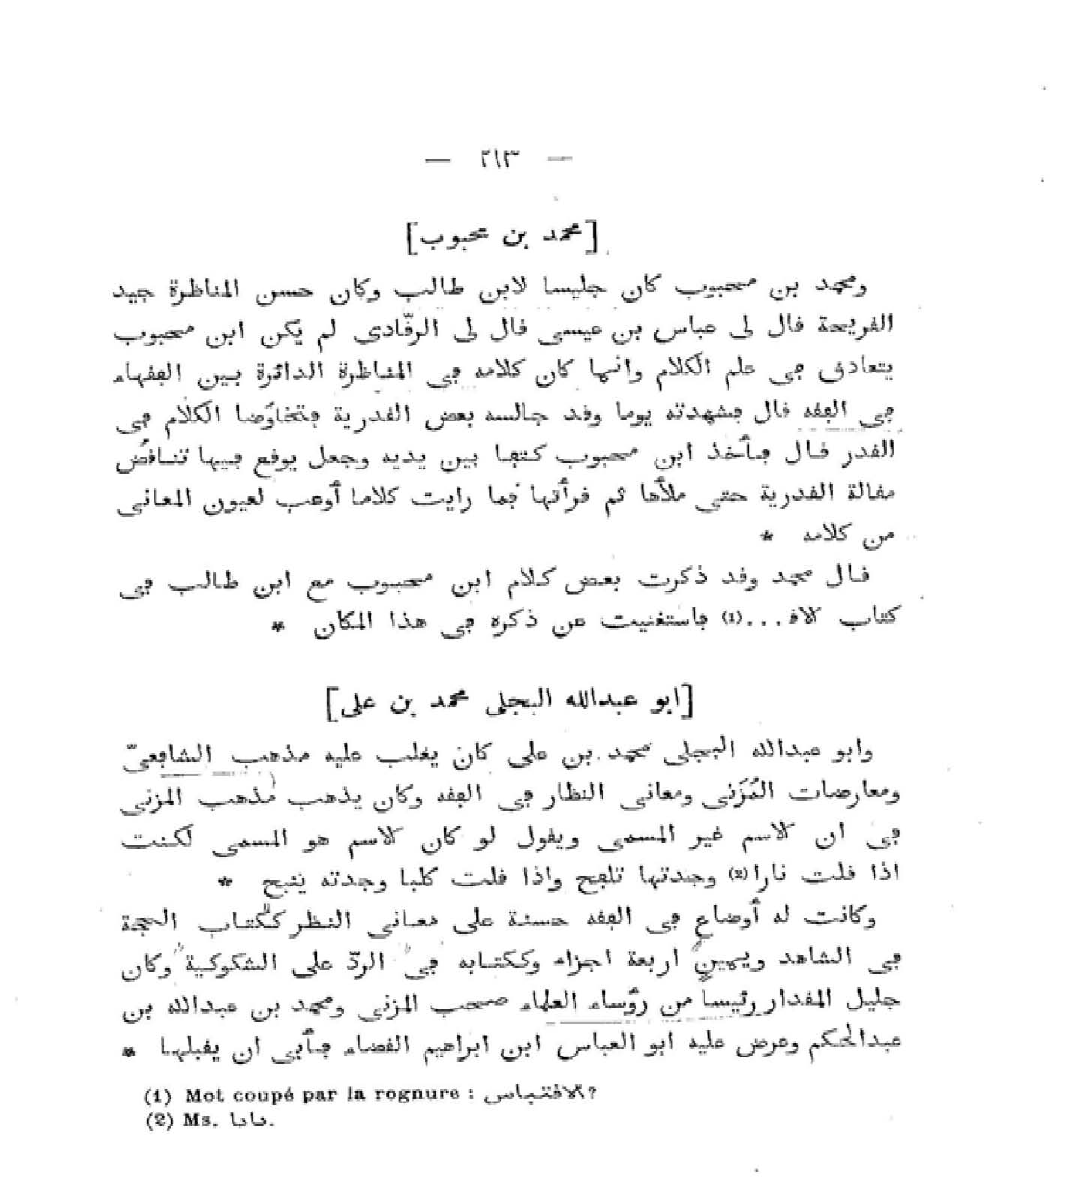 — ٢١٣ —
[محمد بن محبوب]
ومحمد بن محبوب كان جليسا لابن طالب وكان حسن المناظرة جيد
القريحة قال لى عباس بن عيسى قال لى الرقّادى لم يكن ابن محبوب
يتعاذق فى علم الكلام وانما كان كلامه فى المناظرة الدائرة بين الفقهاء
فى الفقه قال فشهدته يوما وقد جالسه بعض القدرية فتخاوَضا الكلام فى
القدر قال فأخذ ابن محبوب كتفا بين يديه وجعل يوقع فيها تناقُض
مقالة القدرية حتى ملأها ثم قرأتها فما رايت كلاما أوعب لعيون المعانى
من كلامه *
قال محمد وقد ذكرت بعض كلام ابن محبوب مع ابن طالب فى
كتاب الاق...(1) فاستغنيت عن ذكره فى هذا المكان *
[ابو عبدالله البجلى محمد بن على]
وابو عبدالله البجلى محمد بن على كان يغلب عليه مذهب الشافعىّ
ومعارضات المُزَنى ومعانى النظار فى الفقه وكان يذهب مذهب المزنى
فى ان الاسم غير المسمى ويقول لو كان الاسم هو المسمى لكنت
اذا قلت نارا(2) وجدتها تلفح واذا قلت كلبا وجدته ينبح *
وكانت له أوضاع فى الفقه حسنة على معانى النظر ككتاب الحجة
فى الشاهد ويمينٍ اربعة اجزاء وككتابه فى الردّ على الشكوكية وكان
جليل المقدار رئيسا من رؤساء العلماء صحب المزنى ومحمد بن عبدالله بن
عبدالحكم وعرض عليه ابو العباس ابن ابراهيم القضاء فأبى ان يقبلها *
(1) Mot coupé par la rognure : الاقتباس?
(2) Ms. نادا.